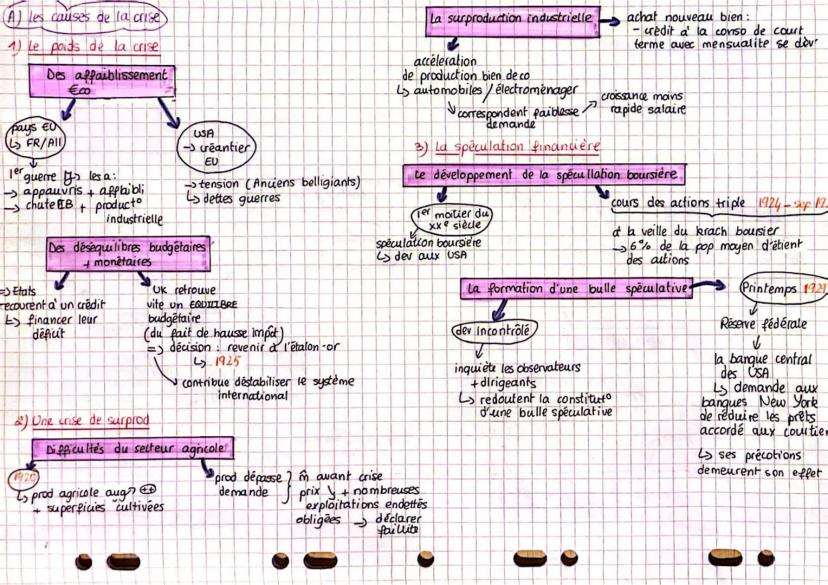 A) les causes de la crise
1) Le poids de la crise
Des affaiblissement
€co
pays EU
↳ FR/All
1er guerre ↳ les a :
→ appauvris + affaibli
→ chute EB + product°
industrielle
USA
→ créantier
EU
→ tension (Anciens belligiants)
↳ dettes guerres
Des déséquilibres budgétaires
+ monétaires
=> Etats
recourent à un crédit
↳ financer leur
déficit
UK retrouve
vite un EQUILIBRE
budgétaire
(du fait de hausse impôt)
=> décision : revenir à l'étalon-or
↳ 1925
contribue déstabiliser le système
international
2) Une crise de surprod
Difficultés du secteur agricole
1920
↳ prod agricole aug ↗ ++
+ superficies cultivées
prod dépasse
demande
m̂ avant crise
prix ↘ + nombreuses
exploitations endettés
obligées → déclarer
faillite
La surproduction industrielle
→ achat nouveau bien :
- crédit à la conso de court
terme avec mensualite se dév
accélération
de production bien de co
↳ automobiles / électroménager
correspondent faiblesse
demande
croissance moins
rapide salaire
3) La spéculation financière
Le développement de la spécullation boursière
1er moitier du
XXe siècle
spéculation boursière
↳ dev aux USA
cours des actions triple 1924 - sep 19
à la veille du krach boursier
→ 6% de la pop moyen d'étient
des actions
La formation d'une bulle spéculative
dev incontrôlé
inquiète les observateurs
+ dirigeants
↳ redoutent la constitut°
d'une bulle spéculative
Printemps 192
Réserve fédérale
la banque central
des USA
↳ demande aux
banques New York
de réduire les prêts
accordé aux courtier
↳ ses précotions
demeurent son effet